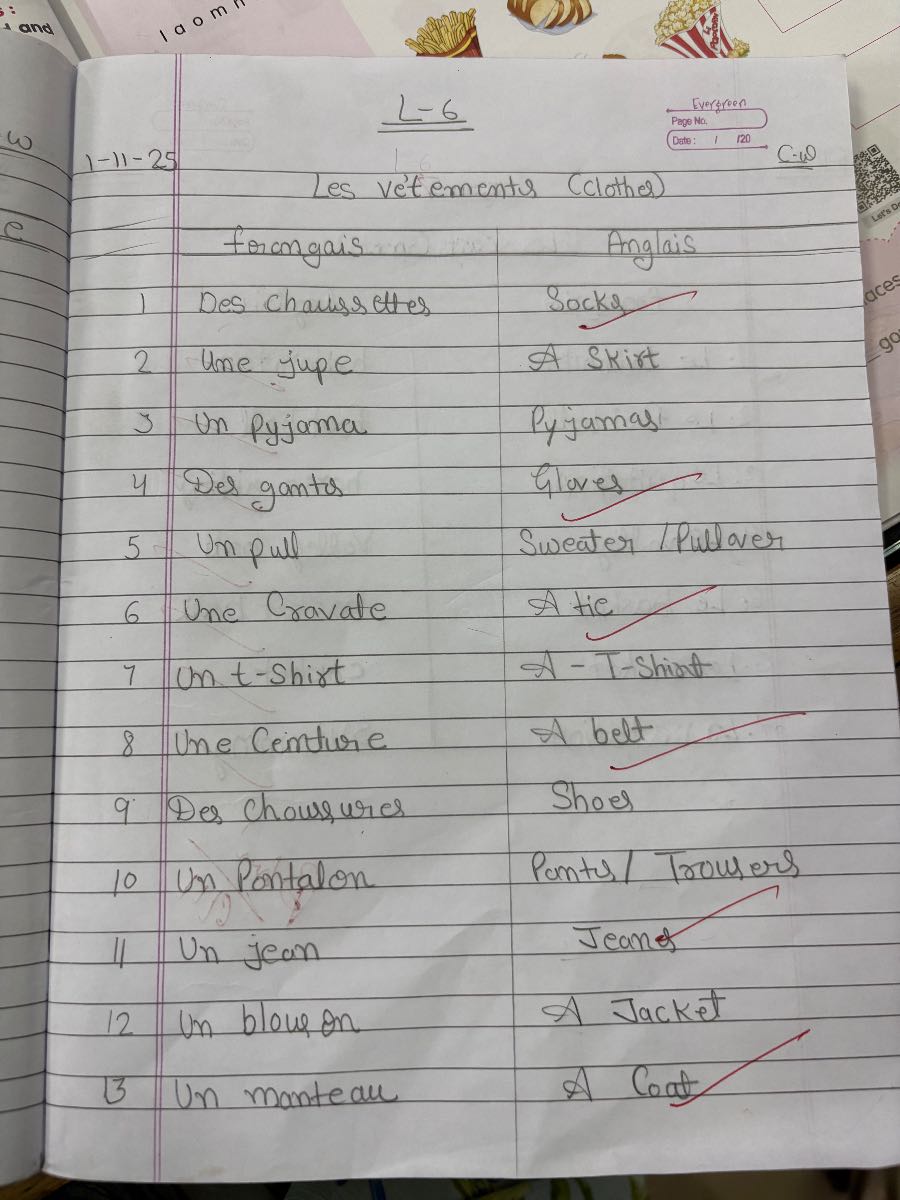 : and
l a o m
L-6
Evergreen
Page No.
Date: / /20
1-11-25
C-W
Les vêtements (clothes)
français Anglais
1 Des chaussettes Socks
2 Une jupe A Skirt
3 Un pyjama Pyjamas
4 Des gants Gloves
5 Un pull Sweater / Pullover
6 Une Cravate A tie
7 Un t-Shirt A - T-Shirt
8 Une Ceinture A belt
9 Des Choussures Shoes
10 Un Pantalon Pants / Trousers
11 Un jean Jeans
12 Un blouson A Jacket
13 Un manteau A Coat